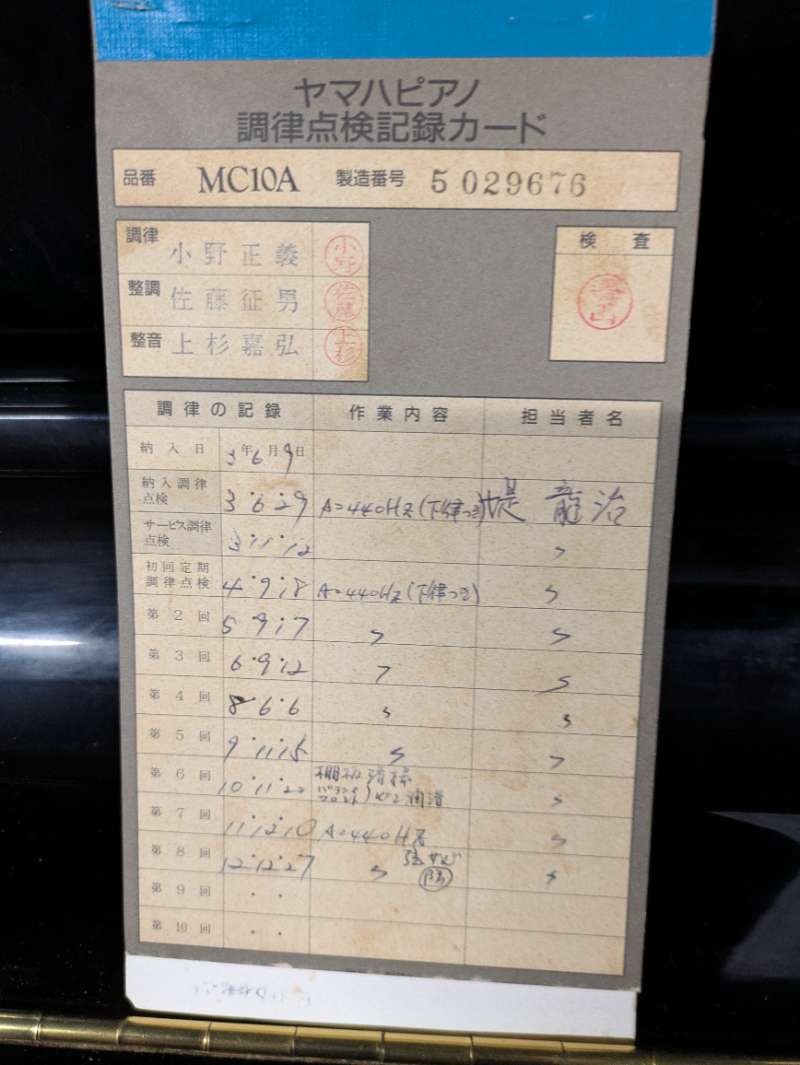 ヤマハピアノ
調律点検記録カード
品番 MC10A 製造番号 5029676
調律 小野正義 小野
整調 佐藤征男 佐藤
整音 上杉嘉弘 上杉
検査
調律の記録 作業内容 担当者名
納入日 3年6月9日
納入調律点検 3・6・29 A=440HZ(下律つき) 堤 龍治
サービス調律点検 3・11・12 〃
初回定期調律点検 4・9・18 A=440HZ(下律つき) 〃
第2回 5・9・17 〃 〃
第3回 6・9・12 〃 〃
第4回 8・6・6 〃 〃
第5回 9・11・15 〃 〃
第6回 10・11・22 棚板清掃 〃
バランス
フロント
ピン潤滑
第7回 11・12・10 A=440HZ 〃
第8回 12・12・27 〃 弦サビ 〃
第9回 ・ ・
第10回 ・ ・